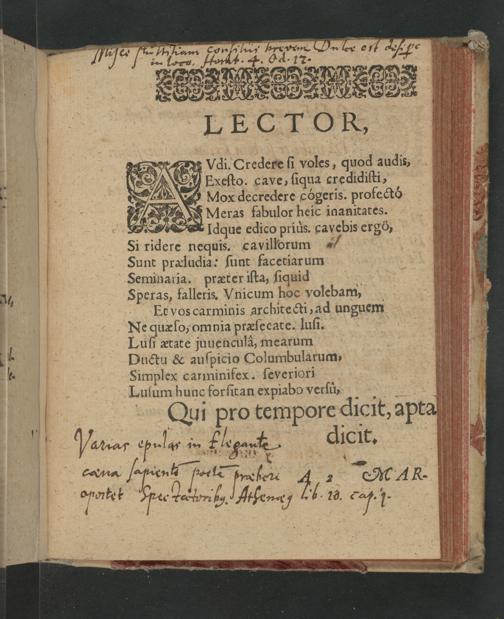 Misce stultitiam consiliis brevem Dulce est desipere
in loco. Horat. 4. Od. 12.
LECTOR,
AVdi. Credere si voles, quod audis,
Exesto. cave, siqua credidisti,
Mox decredere cógeris. profectó
Meras fabulor heic inanitates.
Idque edico priùs. cavebis ergō,
Si ridere nequis. cavillorum
Sunt præludia: sunt facetiarum
Seminaria. præter ista, siquid
Speras, falleris. Vnicum hoc volebam,
Et vos carminis architecti, ad unguem
Ne quæso, omnia præsecate. lusi.
Lusi ætate juuenculâ, mearum
Ductu & auspicio Columbularum,
Simplex carminifex. severiori
Lusum hunc forsitan expiabo versū,
Qui pro tempore dicit, apta
dicit.
Varias epulas in Elegante
cœna sapientē poetā præbere A 2 MAR-
oportet Spectatoribq. Athenæq lib. 10. cap. 1.